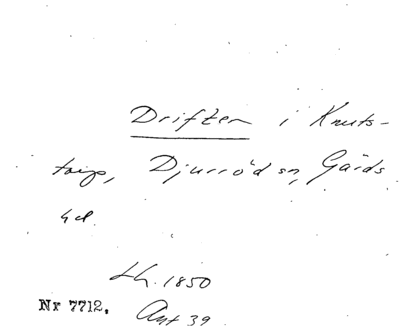 Driften i Knuts-
torp, Djurröd sn, Gärds
hd.
Lh. 1850
Nr 7712. Ant 39